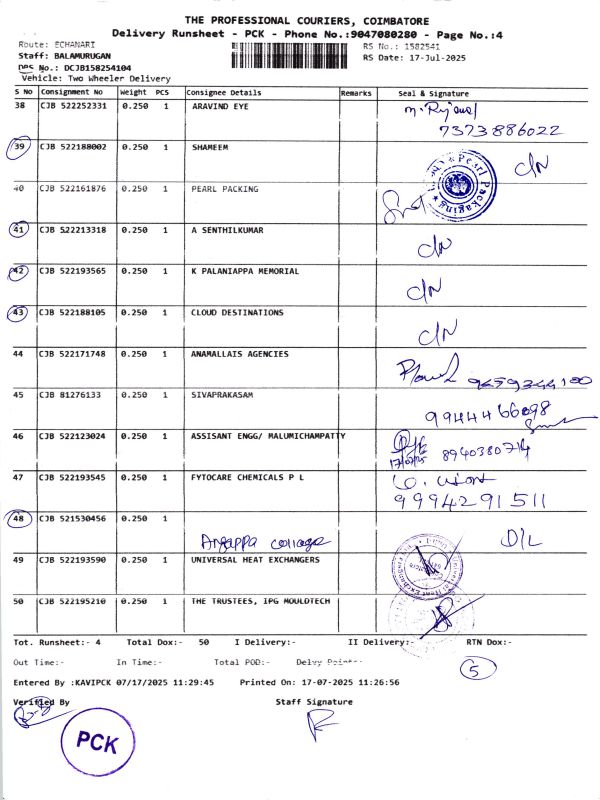 THE PROFESSIONAL COURIERS, COIMBATORE
Delivery Runsheet - PCK - Phone No.:9047080280 - Page No.:4
Route: ECHANARI
RS No.: 1582541
Staff: BALAMURUGAN
RS Date: 17-Jul-2025
DRS No.: DCJB158254104
Vehicle: Two Wheeler Delivery
S No Consignment No Weight PCS Consignee Details Remarks Seal & Signature
38 CJB 522252331 0.250 1 ARAVIND EYE
7373886022
39 CJB 522188002 0.250 1 SHAMEEM C/N
40 CJB 522161876 0.250 1 PEARL PACKING Pearl Packaging
41 CJB 522213318 0.250 1 A SENTHILKUMAR C/N
42 CJB 522193565 0.250 1 K PALANIAPPA MEMORIAL C/N
43 CJB 522188105 0.250 1 CLOUD DESTINATIONS C/N
44 CJB 522171748 0.250 1 ANAMALLAIS AGENCIES
45 CJB 81276133 0.250 1 SIVAPRAKASAM
9944466098
46 CJB 522123024 0.250 1 ASSISANT ENGG/ MALUMICHAMPATTY
17/07/25 8940380714
47 CJB 522193545 0.250 1 FYTOCARE CHEMICALS P L
9994291511
48 CJB 521530456 0.250 1
Angappa college D/L
49 CJB 522193590 0.250 1 UNIVERSAL HEAT EXCHANGERS
50 CJB 522195210 0.250 1 THE TRUSTEES, IPG MOULDTECH
Tot. Runsheet:- 4 Total Dox:- 50 I Delivery:- II Delivery:- RTN Dox:-
Out Time:- In Time:- Total POD:- Delvy Point:-
5
Entered By :KAVIPCK 07/17/2025 11:29:45 Printed On: 17-07-2025 11:26:56
Verified By Staff Signature
PCK